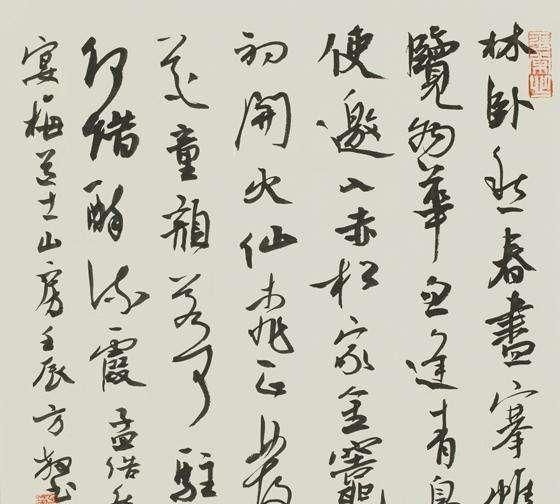 林卧愁春盡搴帷
覽物華忽逢青鳥
使邀入赤松家金竈
初開火仙桃正落
花童顏若可駐
何惜醉流霞孟浩然
宴梅道士山房壬辰方